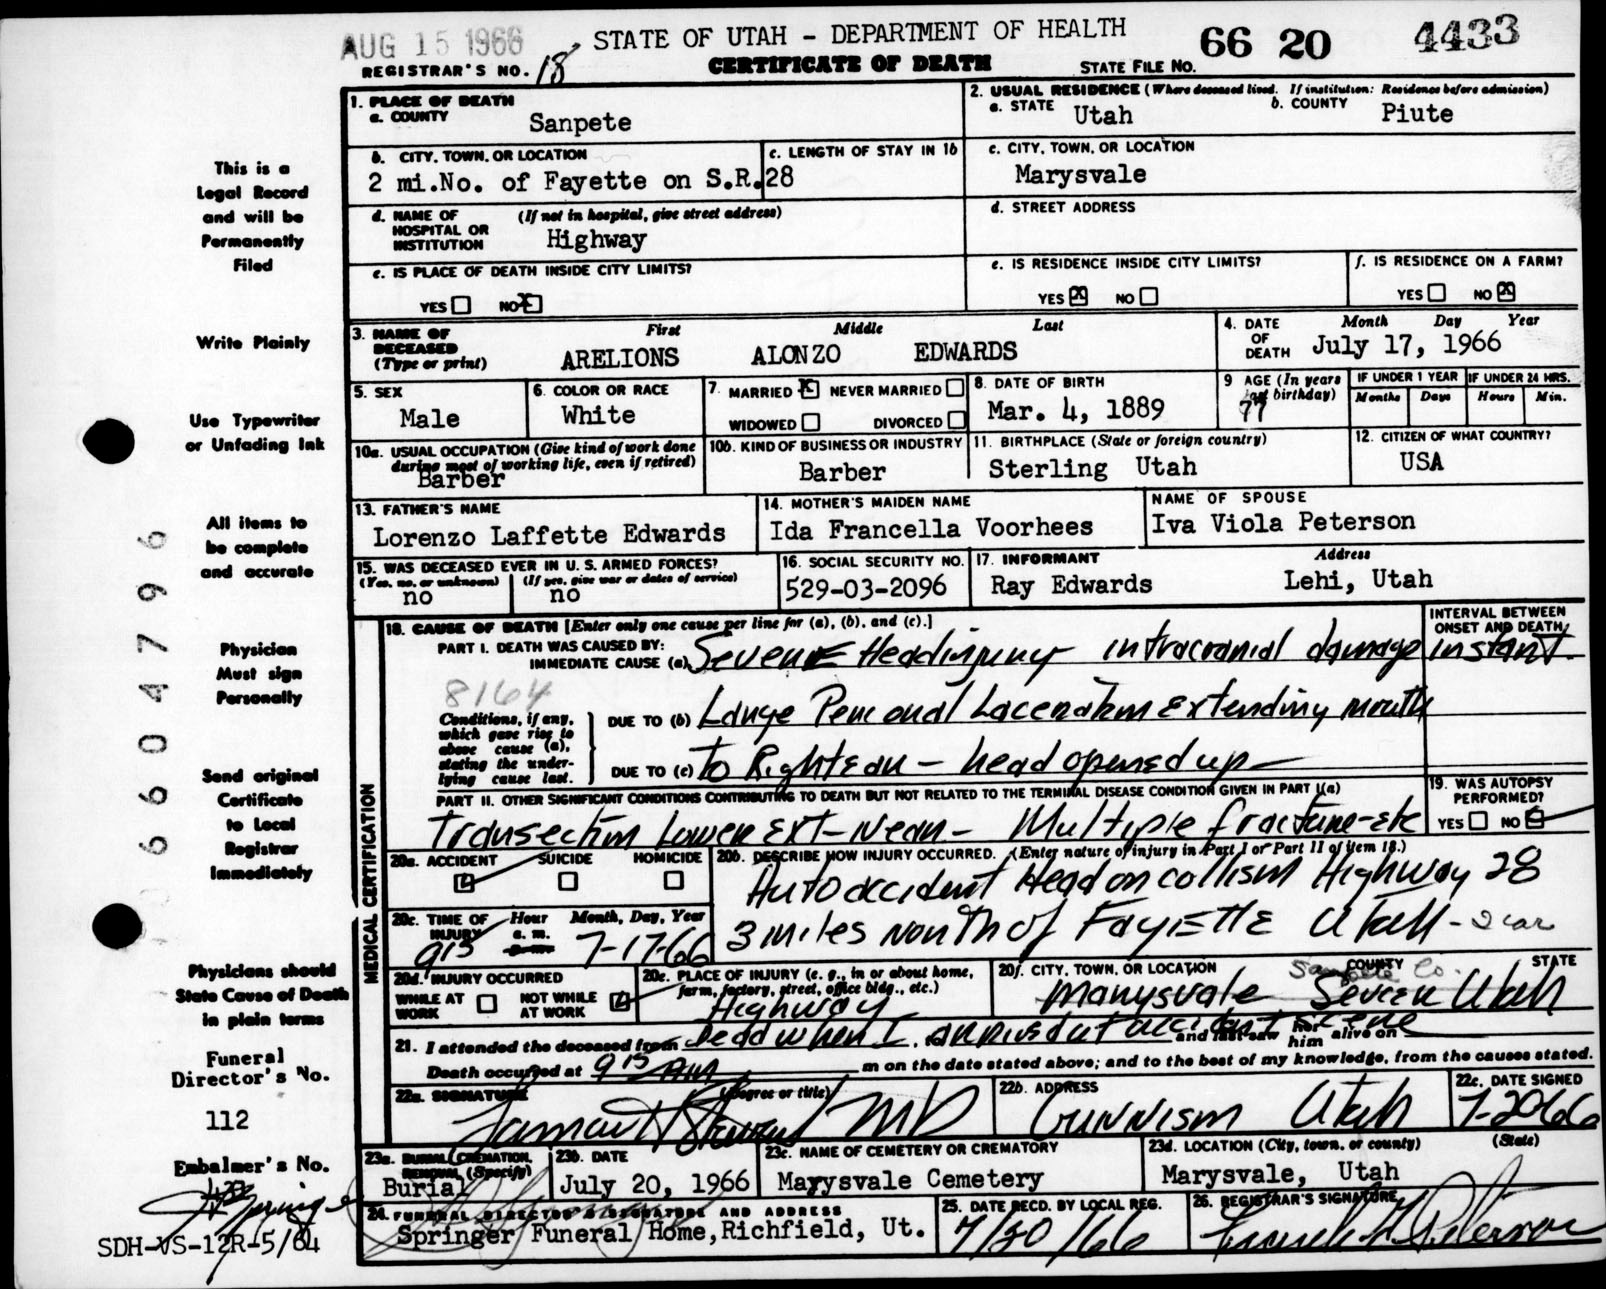 AUG 15 1966
STATE OF UTAH - DEPARTMENT OF HEALTH
66 20 4433
REGISTRAR'S NO. 18
CERTIFICATE OF DEATH
STATE FILE NO.
This is a
Legal Record
and will be
Permanently
Filed
Write Plainly
Use Typewriter
or Unfading Ink
All items to
be complete
and accurate
Physician
Must sign
Personally
Send original
Certificate
to Local
Registrar
Immediately
Physicians should
State Cause of Death
in plain terms
Funeral
Director's No.
112
Embalmer's No.
SDH-VS-12R-5/64
66604796
1. PLACE OF DEATH
a. COUNTY
Sanpete
2. USUAL RESIDENCE (Where deceased lived. If institution: Residence before admission)
a. STATE Utah
b. COUNTY Piute
b. CITY, TOWN, OR LOCATION
2 mi.No. of Fayette on S.R.28
c. LENGTH OF STAY IN 1b
c. CITY, TOWN, OR LOCATION
Marysvale
d. NAME OF HOSPITAL OR INSTITUTION
(If not in hospital, give street address)
Highway
d. STREET ADDRESS
e. IS PLACE OF DEATH INSIDE CITY LIMITS?
YES NO X
e. IS RESIDENCE INSIDE CITY LIMITS?
YES X NO
f. IS RESIDENCE ON A FARM?
YES NO X
3. NAME OF DECEASED
(Type or print)
First Middle Last
ARELIONS ALONZO EDWARDS
4. DATE OF DEATH
Month Day Year
July 17, 1966
5. SEX
Male
6. COLOR OR RACE
White
7. MARRIED X NEVER MARRIED
WIDOWED DIVORCED
8. DATE OF BIRTH
Mar. 4, 1889
9 AGE (In years last birthday)
77
IF UNDER 1 YEAR
Months Days
IF UNDER 24 HRS.
Hours Min.
10a. USUAL OCCUPATION (Give kind of work done
during most of working life, even if retired)
Barber
10b. KIND OF BUSINESS OR INDUSTRY
Barber
11. BIRTHPLACE (State or foreign country)
Sterling Utah
12. CITIZEN OF WHAT COUNTRY?
USA
13. FATHER'S NAME
Lorenzo Laffette Edwards
14. MOTHER'S MAIDEN NAME
Ida Francella Voorhees
NAME OF SPOUSE
Iva Viola Peterson
15. WAS DECEASED EVER IN U. S. ARMED FORCES?
(Yes, no, or unknown) (If yes, give war or dates of service)
no no
16. SOCIAL SECURITY NO.
529-03-2096
17. INFORMANT Address
Ray Edwards Lehi, Utah
MEDICAL CERTIFICATION
18. CAUSE OF DEATH [Enter only one cause per line for (a), (b), and (c).]
INTERVAL BETWEEN
ONSET AND DEATH
PART I. DEATH WAS CAUSED BY:
IMMEDIATE CAUSE (a) Severe Head injury intracranial damage instant.
8164
Conditions, if any,
which gave rise to
above cause (a),
stating the under-
lying cause last.
DUE TO (b) Large Laceration Extending mouth
DUE TO (c) to Right ear - head opened up
PART II. OTHER SIGNIFICANT CONDITIONS CONTRIBUTING TO DEATH BUT NOT RELATED TO THE TERMINAL DISEASE CONDITION GIVEN IN PART I(a)
Transection Lower Ext - Near - Multiple fracture - etc
19. WAS AUTOPSY
PERFORMED?
YES NO
20a. ACCIDENT SUICIDE HOMICIDE
20b. DESCRIBE HOW INJURY OCCURRED. (Enter nature of injury in Part I or Part II of item 18.)
Auto accident Head on collism Highway 28
3 miles North of Fayette Utah - 2 car
20c. TIME OF INJURY
Hour Month, Day, Year
a. m.
p. m.
9 15 7-17-66
20d. INJURY OCCURRED
WHILE AT WORK NOT WHILE AT WORK
20e. PLACE OF INJURY (e. g., in or about home,
farm, factory, street, office bldg., etc.)
Highway
20f. CITY, TOWN, OR LOCATION COUNTY STATE
Sanpete Co.
Marysvale Sevier Utah
21. I attended the deceased from Dead when I arrived at accident scene and last saw her him alive on
Death occurred at 9 15 PM m on the date stated above; and to the best of my knowledge, from the causes stated.
22a. SIGNATURE (Degree or title)
Lamar H Stewart MD
22b. ADDRESS
Gunnison Utah
22c. DATE SIGNED
7-20-66
23a. BURIAL, CREMATION, REMOVAL (Specify)
Burial
23b. DATE
July 20, 1966
23c. NAME OF CEMETERY OR CREMATORY
Marysvale Cemetery
23d. LOCATION (City, town, or county) (State)
Marysvale, Utah
24. FUNERAL DIRECTOR'S SIGNATURE AND ADDRESS
Springer Funeral Home, Richfield, Ut.
25. DATE RECD. BY LOCAL REG.
7/30/66
26. REGISTRAR'S SIGNATURE